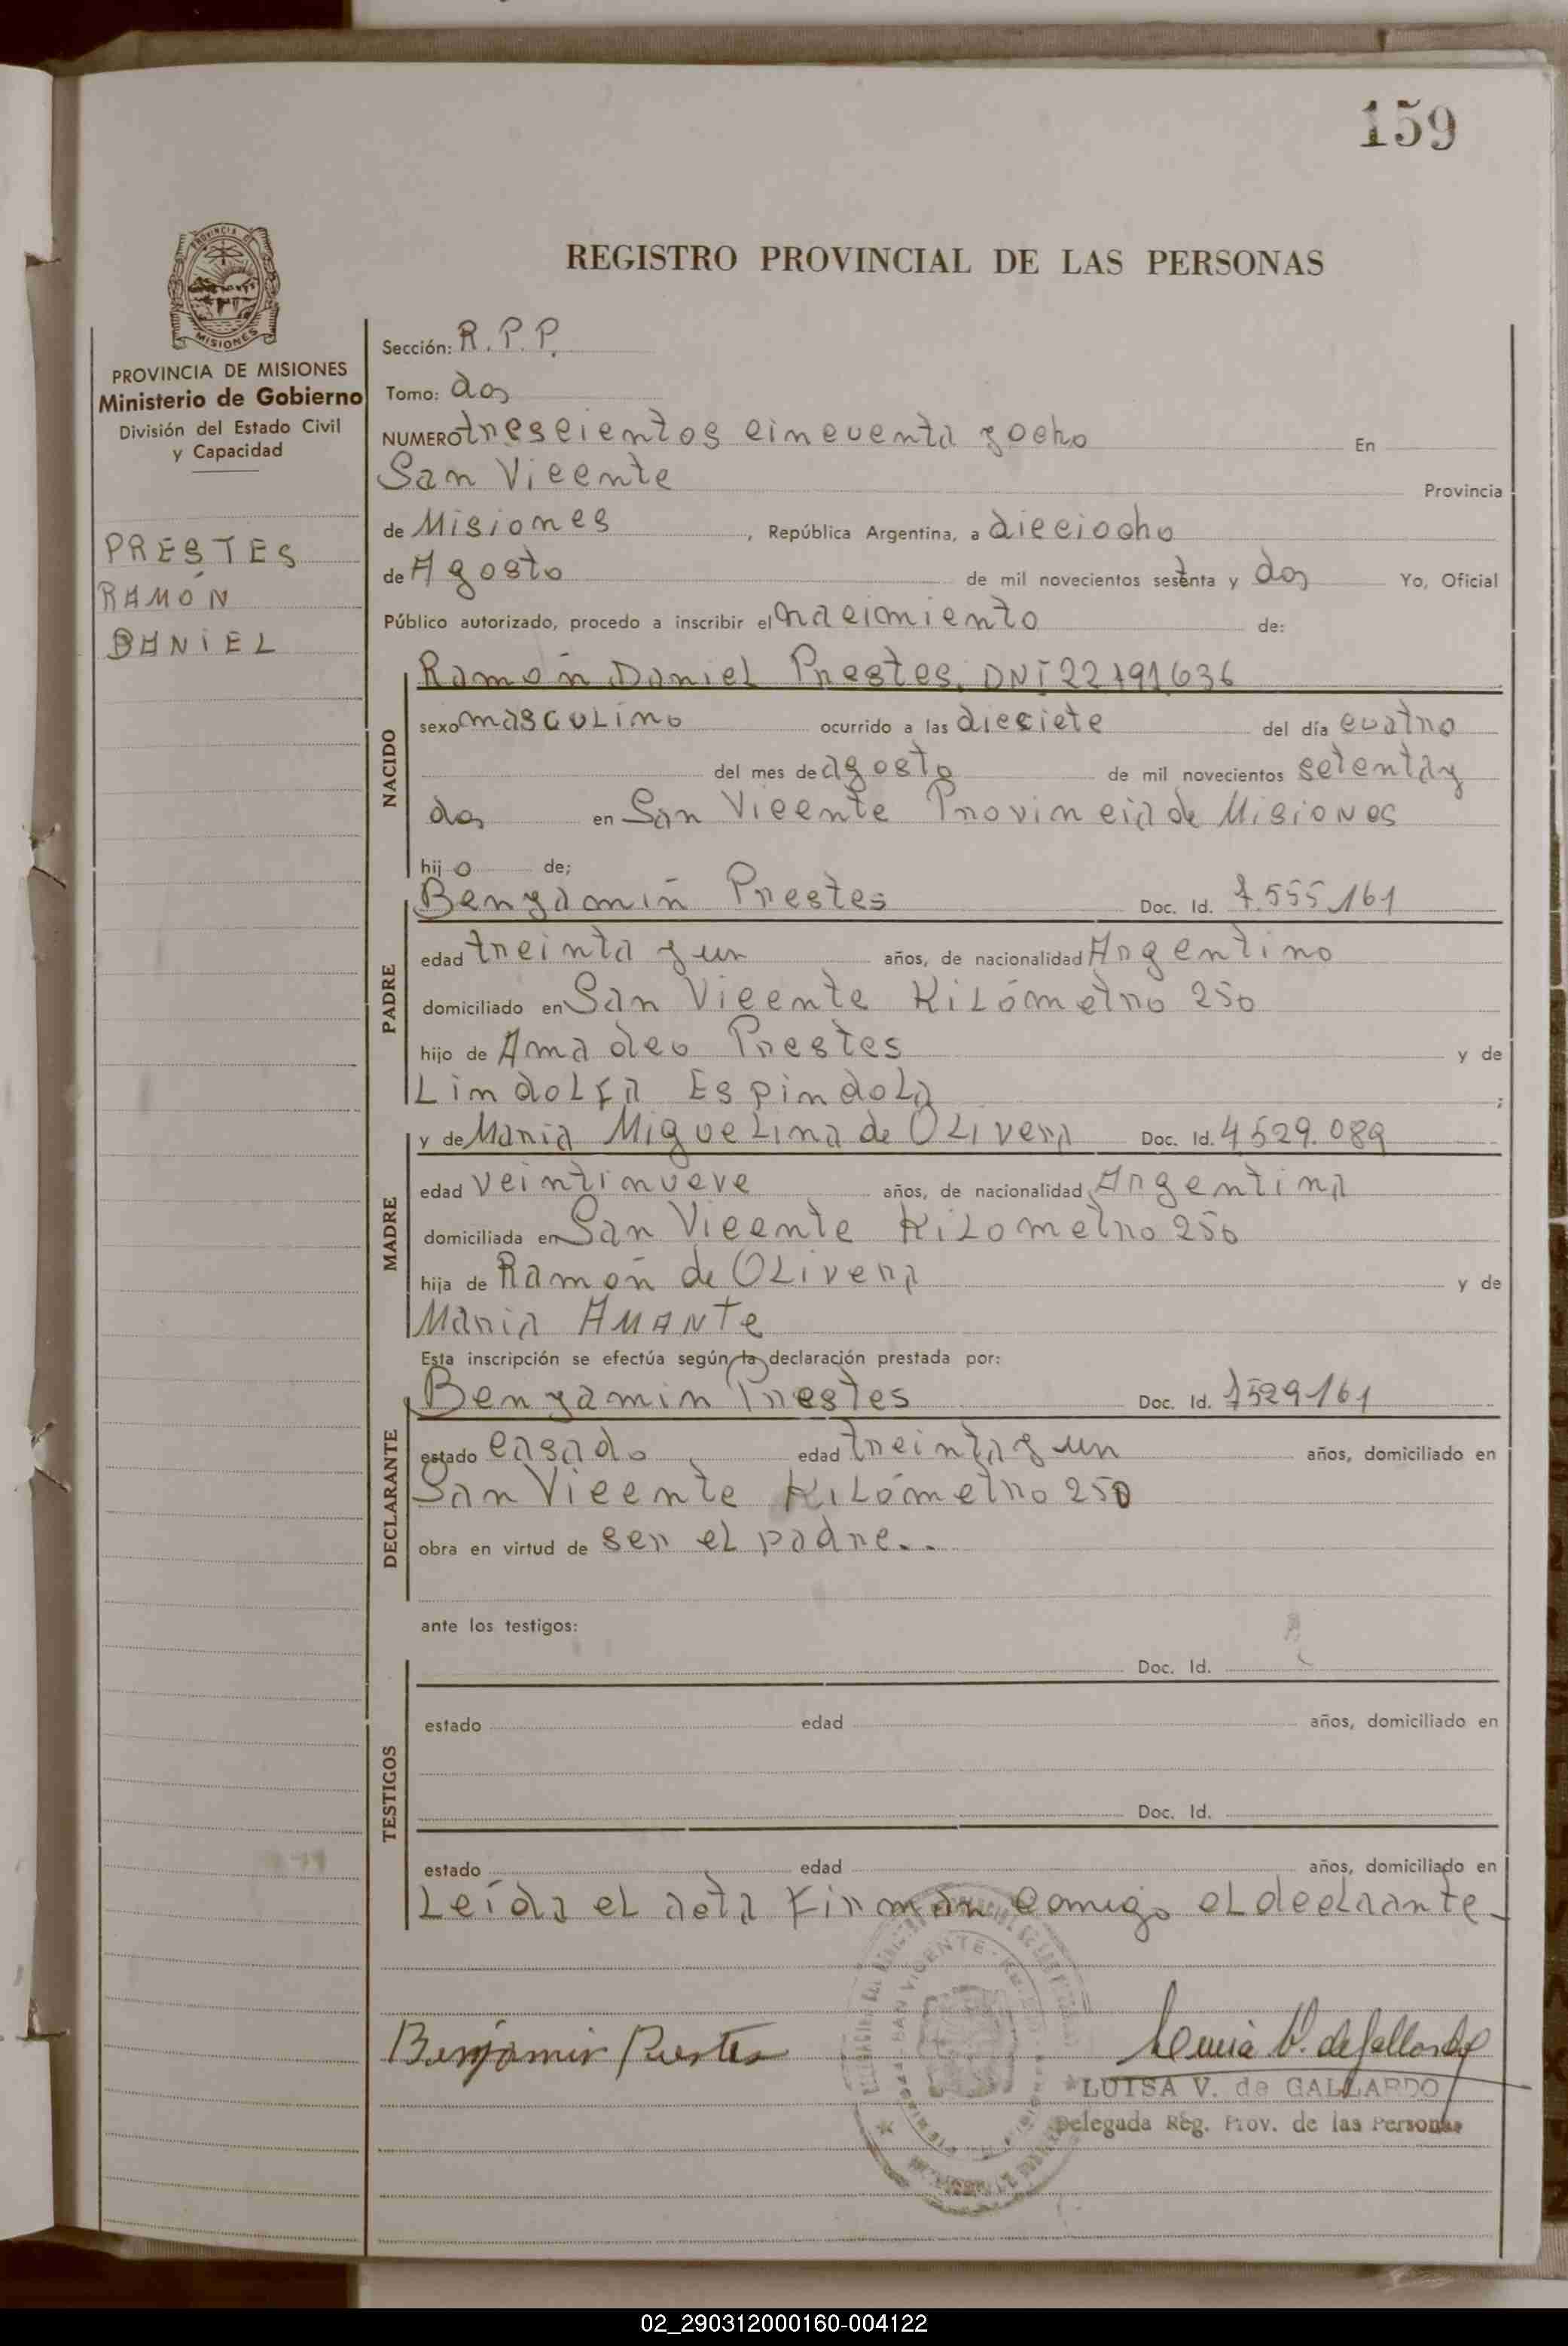 159
REGISTRO PROVINCIAL DE LAS PERSONAS
PROVINCIA DE MISIONES
Ministerio de Gobierno
División del Estado Civil
y Capacidad
PRESTES
RAMÓN
DANIEL
Sección: R.P.P.
Tomo: dos
NUMERO trescientos cincuenta y ocho En
San Vicente Provincia
de Misiones, República Argentina, a dieciocho
de Agosto de mil novecientos setenta y dos Yo, Oficial
Público autorizado, procedo a inscribir el nacimiento de:
Ramón Daniel Prestes. DNI 22791636
sexo masculino ocurrido a las diesiete del día cuatro
del mes de agosto de mil novecientos setenta y
dos en San Vicente Provincia de Misiones
hijo de;
NACIDO
Benyamín Prestes Doc. Id. 7.555.161
edad treinta y un años, de nacionalidad Argentino
domiciliado en San Vicente Kilómetro 250
hijo de Amadeo Prestes y de
Lindolfa Espindola ;
PADRE
y de Maria Miguelina de Olivera Doc. Id. 4529.089
edad veintinueve años, de nacionalidad Argentina
domiciliada en San Vicente Kilometro 250
hija de Ramón de Olivera y de
Maria Amante
MADRE
Esta inscripción se efectúa según la declaración prestada por:
Benyamin Prestes Doc. Id. 7529161
estado casado edad treinta y un años, domiciliado en
San Vicente Kilómetro 250
obra en virtud de ser el padre..
DECLARANTE
ante los testigos:
Doc. Id.
estado edad años, domiciliado en
Doc. Id.
estado edad años, domiciliado en
TESTIGOS
Leída el acta firman comigo el declarante
Benjamin Prestes
Luisa V. de Gallardo
LUISA V. de GALLARDO
Delegada Reg. Prov. de las Personas
02_290312000160-004122